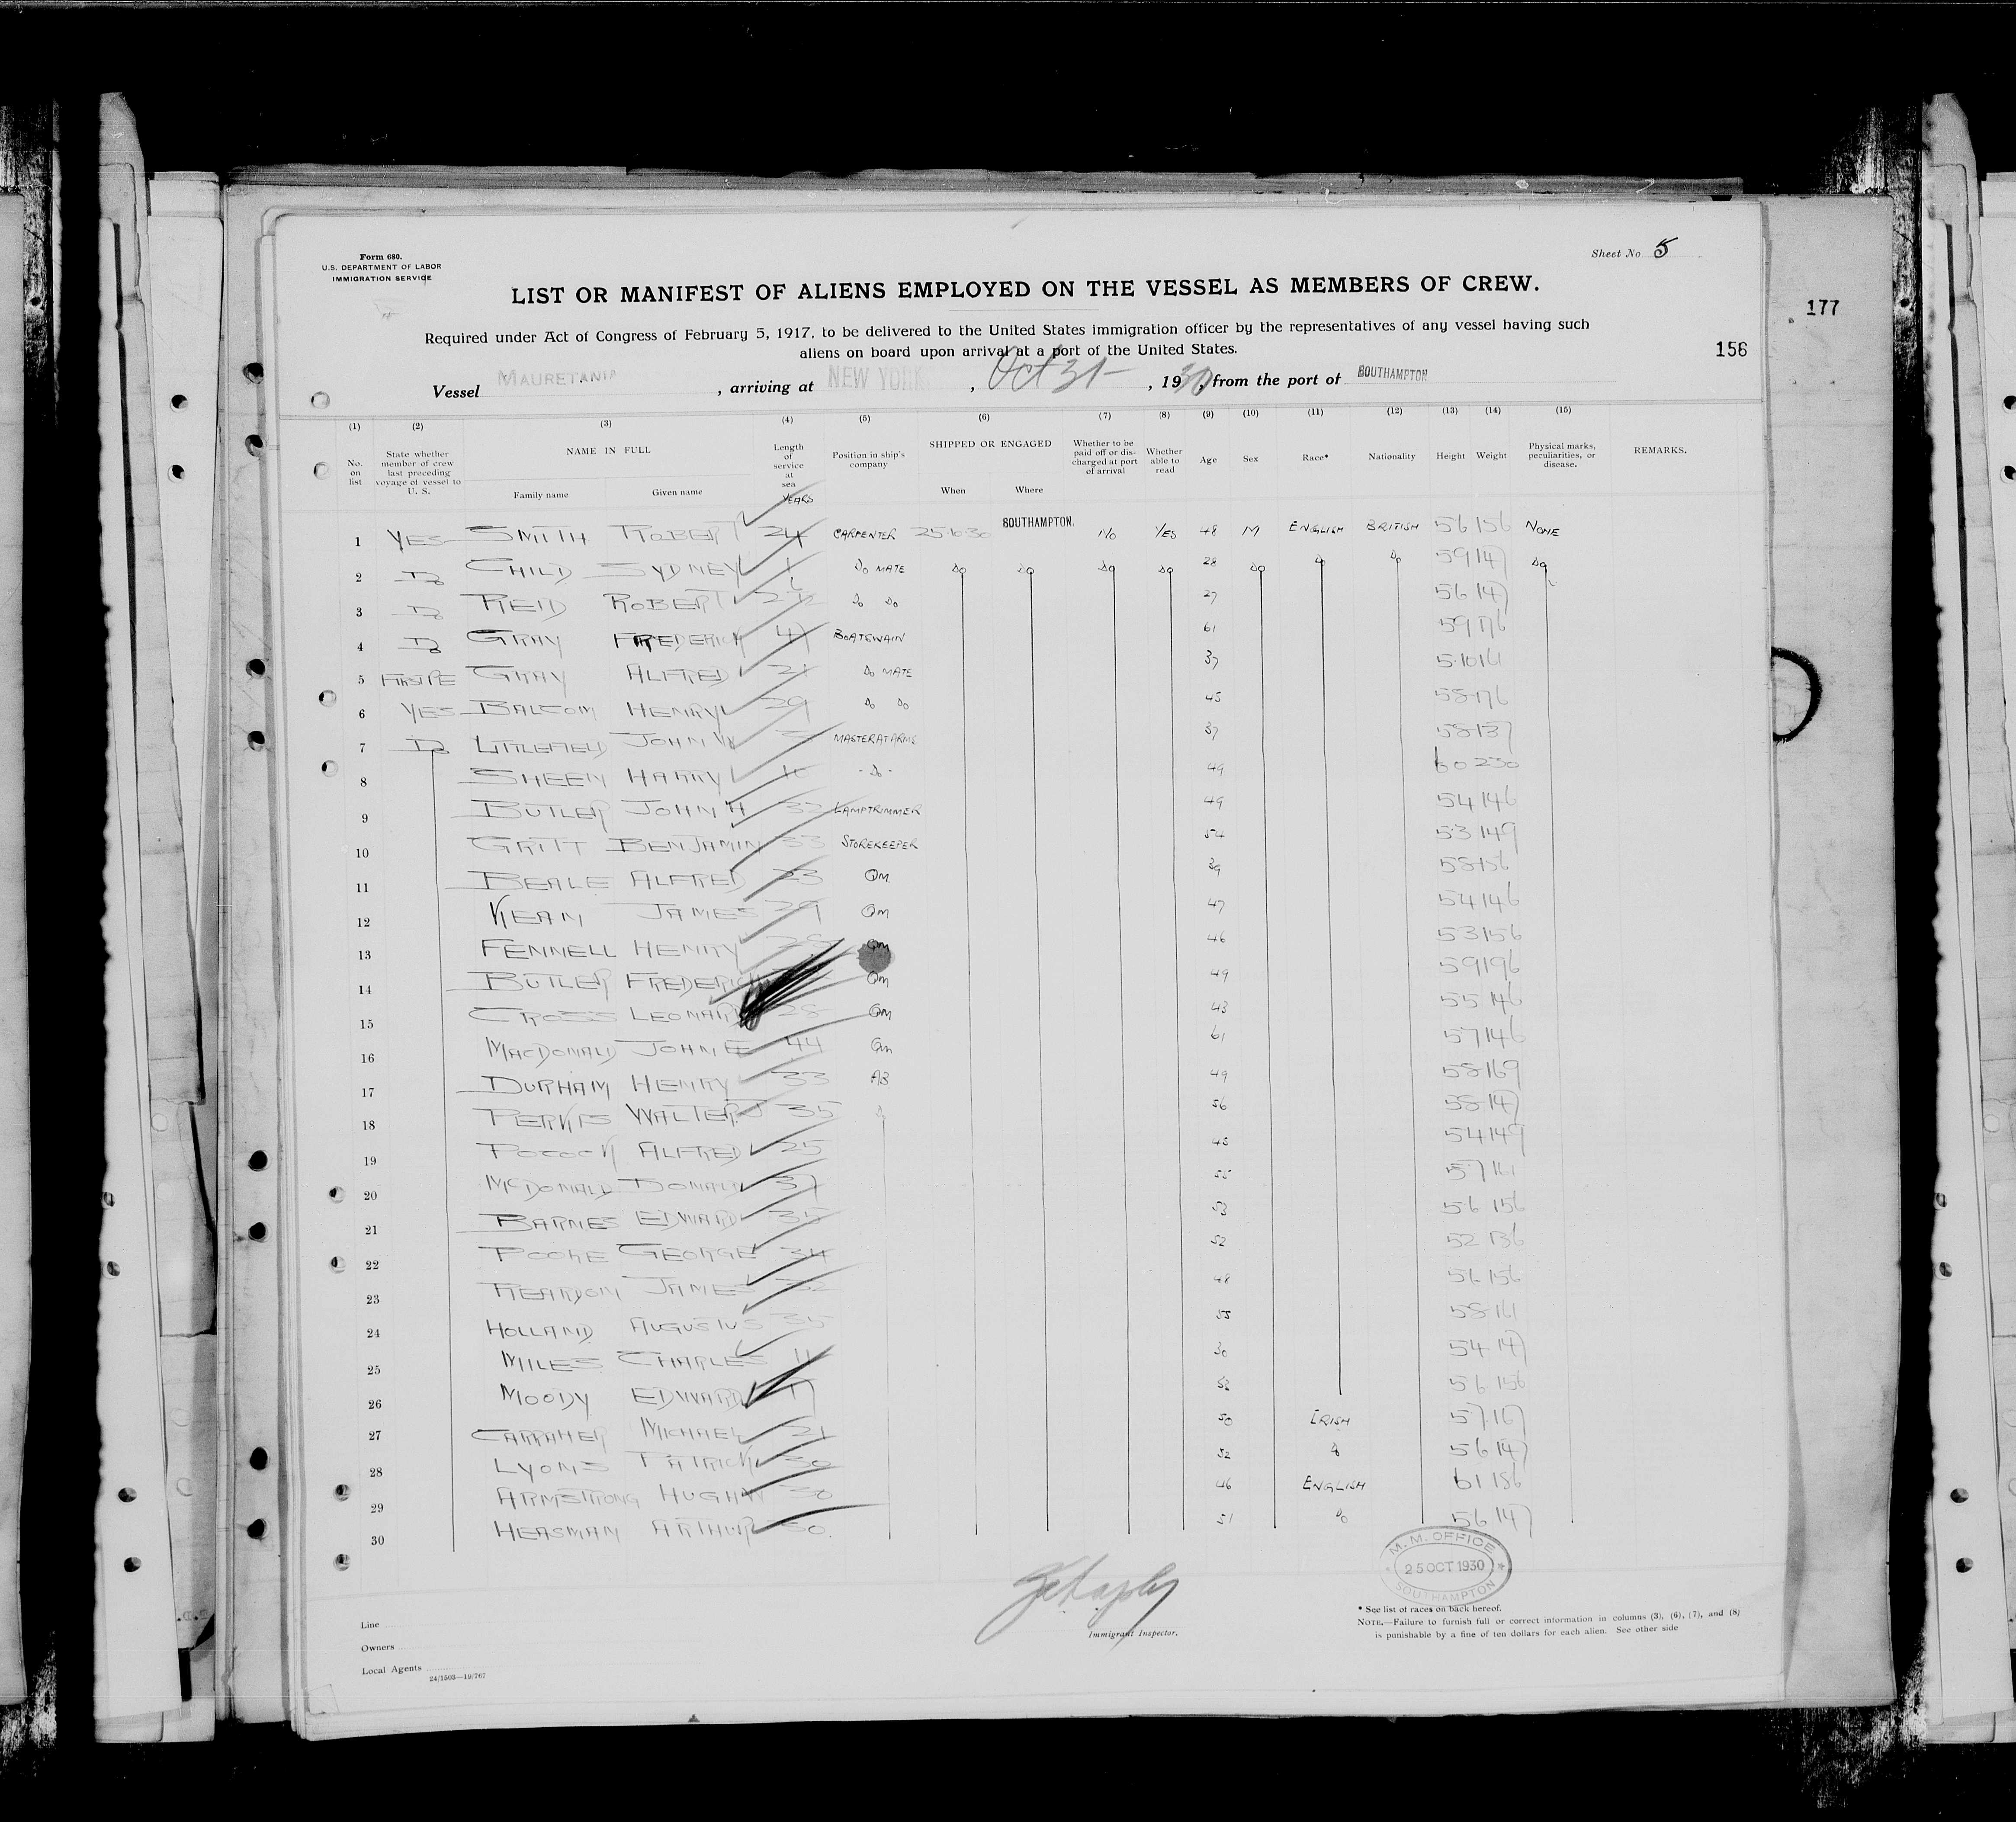 Form 680.
U.S. DEPARTMENT OF LABOR
IMMIGRATION SERVICE
Sheet No 5
LIST OR MANIFEST OF ALIENS EMPLOYED ON THE VESSEL AS MEMBERS OF CREW.
177
Required under Act of Congress of February 5, 1917, to be delivered to the United States immigration officer by the representatives of any vessel having such
aliens on board upon arrival at a port of the United States.
156
Vessel MAURETANIA, arriving at NEW YORK, Oct 31 -, 1930, from the port of SOUTHAMPTON
(1) (2) (3) (4) (5) (6) (7) (8) (9) (10) (11) (12) (13) (14) (15)
No. on list
State whether member of crew last preceding voyage of vessel to U. S.
NAME IN FULL
Family name Given name
Length of service at sea
YEARS
Position in ship's company
SHIPPED OR ENGAGED
When Where
Whether to be paid off or discharged at port of arrival
Whether able to read
Age
Sex
Race*
Nationality
Height
Weight
Physical marks, peculiarities, or disease.
REMARKS.
1 YES SMITH ROBERT 24 CARPENTER 25.10.30 SOUTHAMPTON. NO YES 48 M ENGLISH BRITISH 56 156 NONE
2 Do CHILD SYDNEY Do MATE Do Do Do Do 28 Do Do Do 59 147 Do
3 Do REID ROBERT Do Do 27 56 147
4 Do GRAY FREDERICK 47 BOATSWAIN 61 59 176
5 GRAY ALFRED 21 Do MATE 37 5.10 161
6 YES BALSOM HENRY 29 Do Do 45 58 176
7 Do LITTLEFIELD JOHN W MASTER AT ARMS 37 58 137
8 SHEEN HARRY - Do - 49 60 230
9 BUTLER JOHN H 32 LAMPTRIMMER 49 54 146
10 GRITT BENJAMIN 33 STOREKEEPER 54 53 149
11 BEALE ALFRED 23 QM 39 58 156
12 KEAN JAMES 29 QM 47 54 146
13 FENNELL HENRY QM 46 53 156
14 BUTLER FREDERICK QM 49 59 196
15 CROSS LEONARD 28 QM 43 55 146
16 MACDONALD JOHN E 44 QM 61 57 146
17 DURHAM HENRY 33 AB 49 58 169
18 PERKIS WALTER J 35 Do 56 58 147
19 POCOCK ALFRED 25 43 54 149
20 MCDONALD DONALD 37 55 57 161
21 BARNES EDWARD 35 53 56 156
22 POOKE GEORGE 34 52 52 136
23 REARDON JAMES 32 48 56 156
24 HOLLAND AUGUSTUS 35 55 58 161
25 MILES CHARLES 11 30 54 147
26 MOODY EDWARD 17 52 56 156
27 CARRAHER MICHAEL 21 50 IRISH 57 167
28 LYONS PATRICK 30 52 Do 56 147
29 ARMSTRONG HUGH 30 46 ENGLISH 61 186
30 HEASMAN ARTHUR 30. 51 Do 56 147
M. M. OFFICE
25 OCT 1930
SOUTHAMPTON
Immigrant Inspector.
* See list of races on back hereof.
NOTE.—Failure to furnish full or correct information in columns (3), (6), (7), and (8)
is punishable by a fine of ten dollars for each alien. See other side
Line
Owners
Local Agents
24/1503—19/767